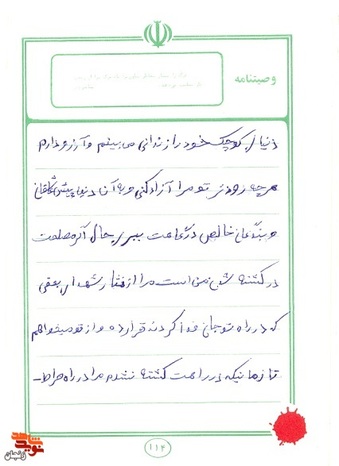 وصیتنامه
دنیای کوچک خود را زندانی می بینم و آرزو دارم
هر چه زودتر تو مرا آزاد کنی و به آن دنیا پیش
و بندگان خالص درگاهت ببری حال اگر مصلحت
در کشته شدن من است مرا از شهدای
که در راه تو جان فدا کردند قرار ده و از تو میخواهم
تا زمانیکه در راهت کشته نشدم مرا در راه صراط-
۱۱۴
نوید شاهد
زنجان